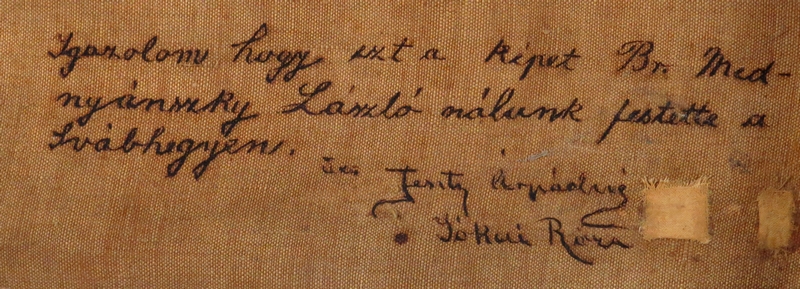 Igazolom hogy ezt a képet Br. Med-
nyánszky László nálunk festette a
Svábhegyen.
Feszty Árpádné
Jókai Róza